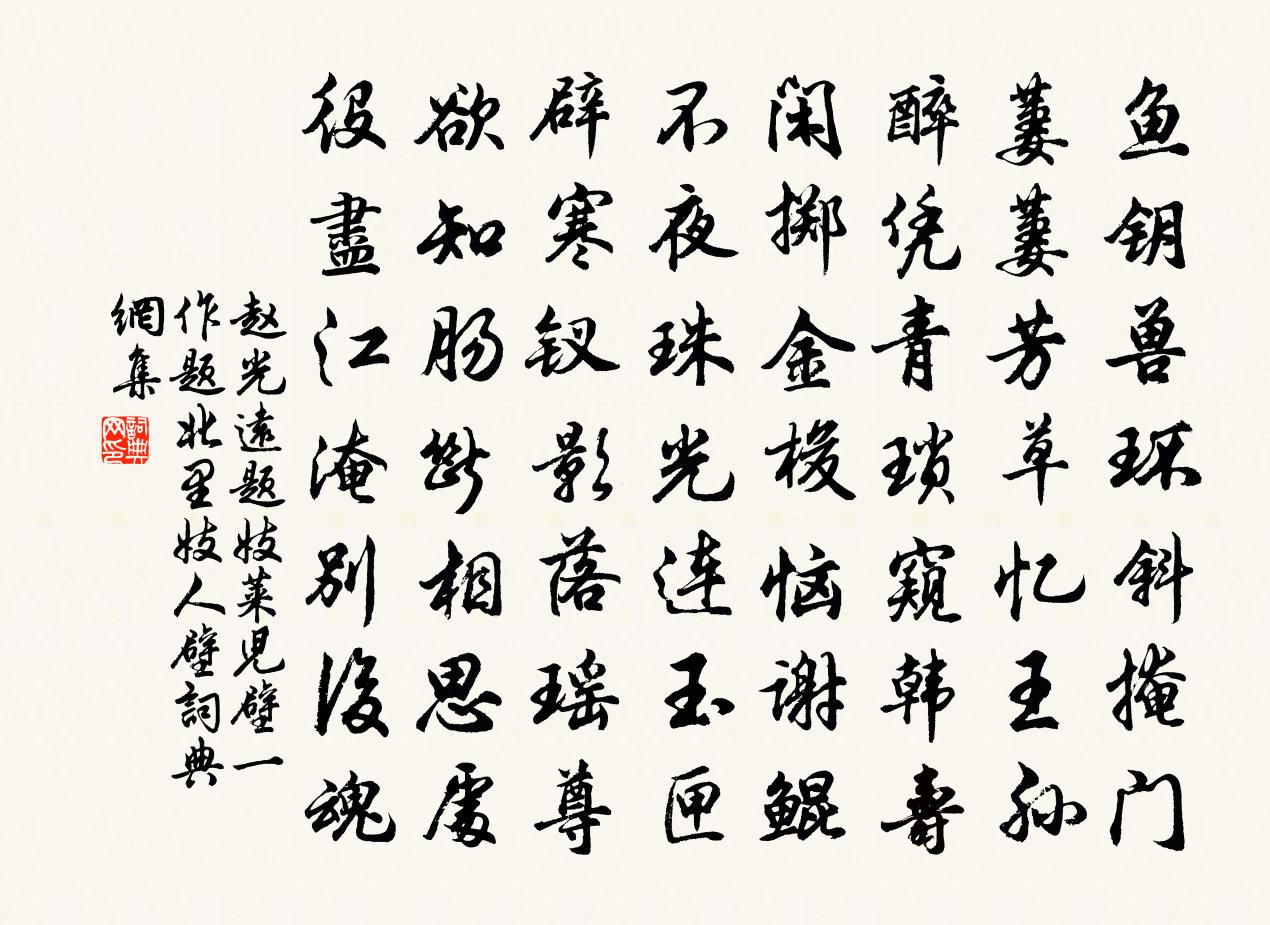 鱼钥兽环斜掩门
萋萋芳草忆王孙
醉凭青琐窥韩壽
闲掷金梭恼谢鲲
不夜珠光连玉匣
辟寒钗影落瑶尊
欲知肠断相思處
役盡江淹别後魂
赵光遠题妓莱児壁一
作题北里妓人壁詞典
網集
詞典网印